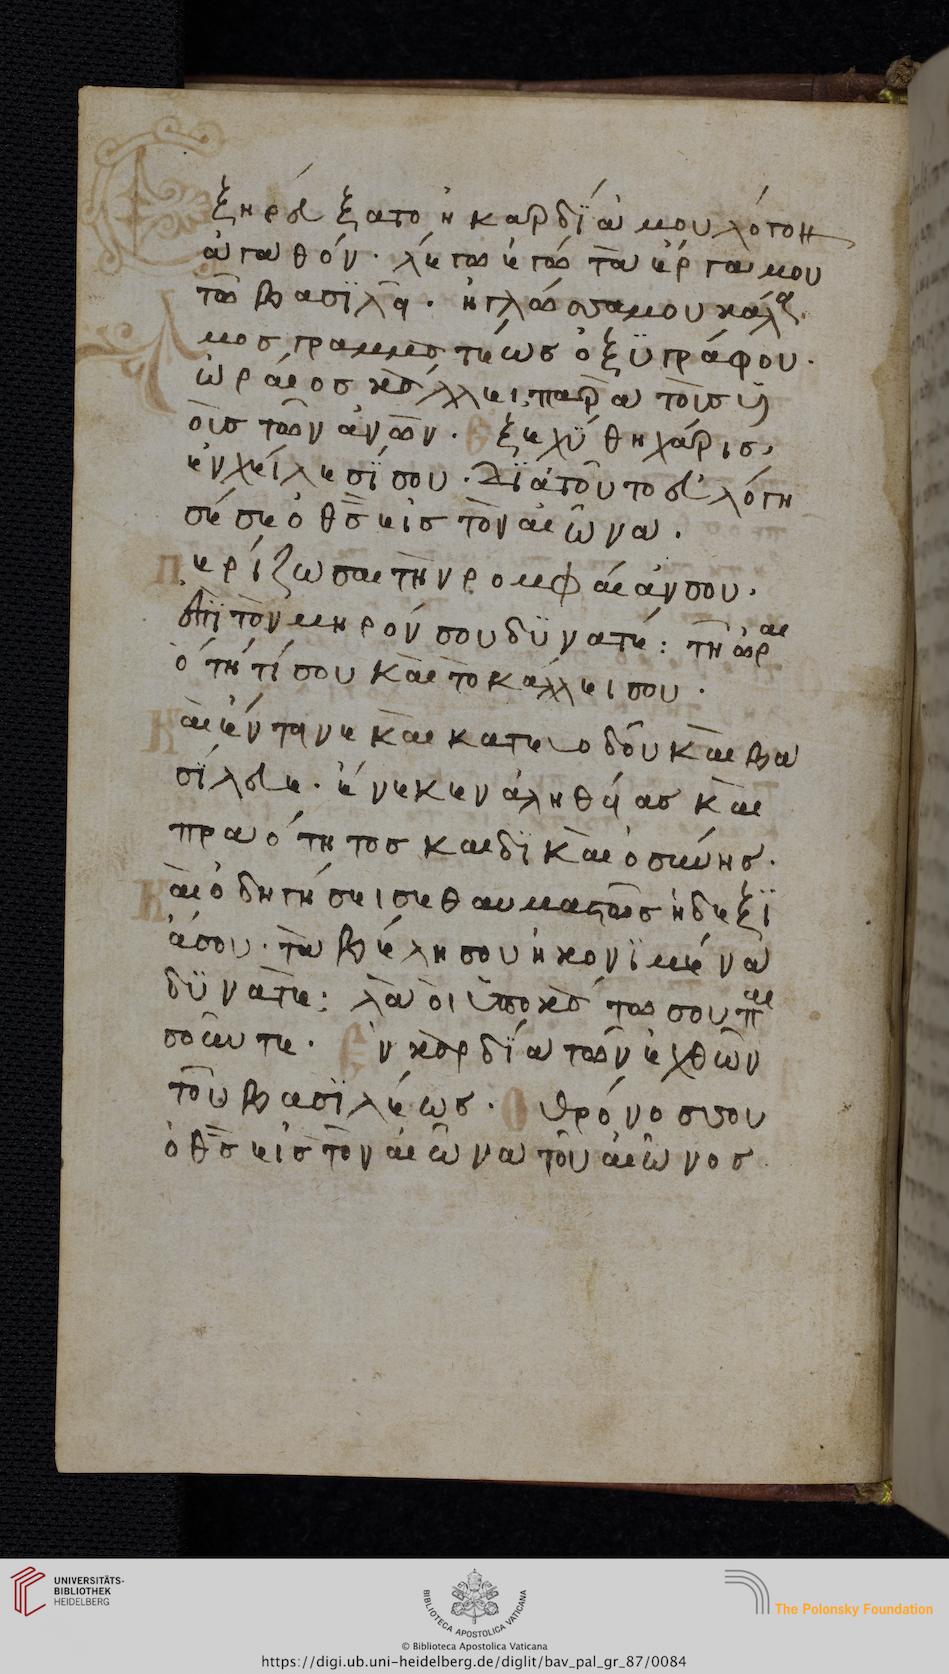 Ἐξηρεύξατο ἡ καρδΐα μου λόγον
ἀγαθόν· λέγω ἐγὼ τὰ ἔργα μου
τῷ βασϊλεῖ· ἡ γλῶσσα μου κάλα
μος γραμματέως ὀξϋγράφου·
ὡραῖος κάλλει παρὰ τοὺς υἱ
οὺς τῶν ἀνων· Ἐξεχΰθη χάρις
ἐν χείλεσΐ σου· δϊὰ τοῦτο εὐλόγη
σέ σε ὁ θς εἰς τὸν αἰῶνα·
Περίζωσαι τὴν ρομφαίαν σου·
ἐπῒ τὸν μηρόν σου δϋνατέ: τῇ ὡραι
ότητί σου καὶ τὸ κάλλει σου·
Καὶ ἔντεινε καὶ κατευοδοῦ καὶ βα
σΐλευε· ἕνεκεν ἀληθείας καὶ
πραότητος καὶ δϊκαιοσύνης·
Καὶ ὁδηγήσει σε θαυμαστῶς ἡ δεξϊ
ά σου· τὰ βέλη σου ἠκονϊμένα
δϋνατέ: λαοὶ ὑποκάτω σου πε
σοῦνται· Ἐν καρδΐα τῶν ἐχθρῶν
τοῦ βασϊλέως· Ὁ θρόνος σου
ὁ θς εἰς τὸν αἰῶνα τοῦ αἰῶνος
UNIVERSITÄTS-
BIBLIOTHEK
HEIDELBERG
BIBLIOTECA APOSTOLICA VATICANA
The Polonsky Foundation
© Biblioteca Apostolica Vaticana
https://digi.ub.uni-heidelberg.de/diglit/bav_pal_gr_87/0084